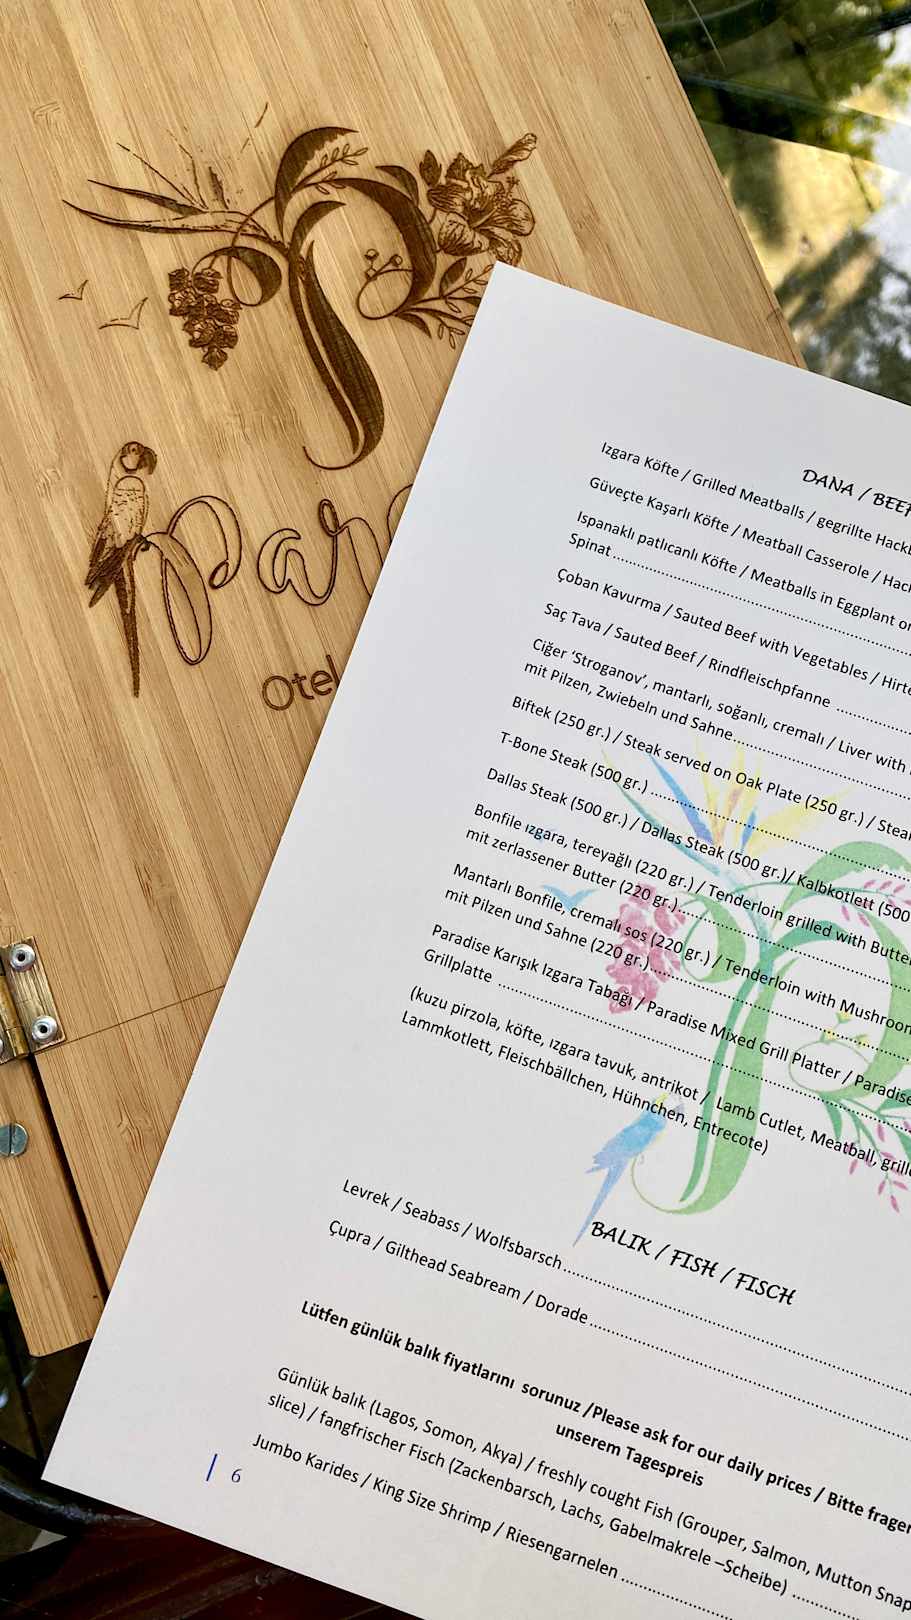 Para
Otel
DANA / BEEF
Izgara Köfte / Grilled Meatballs / gegrillte Hackb
Güveçte Kaşarlı Köfte / Meatball Casserole / Hack
Ispanaklı patlıcanlı Köfte / Meatballs in Eggplant or
Spinat
Çoban Kavurma / Sauted Beef with Vegetables / Hirte
Saç Tava / Sauted Beef / Rindfleischpfanne
Ciğer ‘Stroganov’, mantarlı, soğanlı, cremalı / Liver with
mit Pilzen, Zwiebeln und Sahne
Biftek (250 gr.) / Steak served on Oak Plate (250 gr.) / Steak
T-Bone Steak (500 gr.)
Dallas Steak (500 gr.) / Dallas Steak (500 gr.)/ Kalbkotlett (500
Bonfile ızgara, tereyağlı (220 gr.) / Tenderloin grilled with Butter
mit zerlassener Butter (220 gr.)
Mantarlı Bonfile, cremalı sos (220 gr.) / Tenderloin with Mushroom
mit Pilzen und Sahne (220 gr.)
Paradise Karışık Izgara Tabağı / Paradise Mixed Grill Platter / Paradise
Grillplatte
(kuzu pirzola, köfte, ızgara tavuk, antrikot / Lamb Cutlet, Meatball, grille
Lammkotlett, Fleischbällchen, Hühnchen, Entrecote)
BALIK / FISH / FISCH
Levrek / Seabass / Wolfsbarsch
Çupra / Gilthead Seabream / Dorade
Lütfen günlük balık fiyatlarını sorunuz /Please ask for our daily prices / Bitte fragen
unserem Tagespreis
Günlük balık (Lagos, Somon, Akya) / freshly cought Fish (Grouper, Salmon, Mutton Snap
slice) / fangfrischer Fisch (Zackenbarsch, Lachs, Gabelmakrele –Scheibe)
Jumbo Karides / King Size Shrimp / Riesengarnelen
| 6